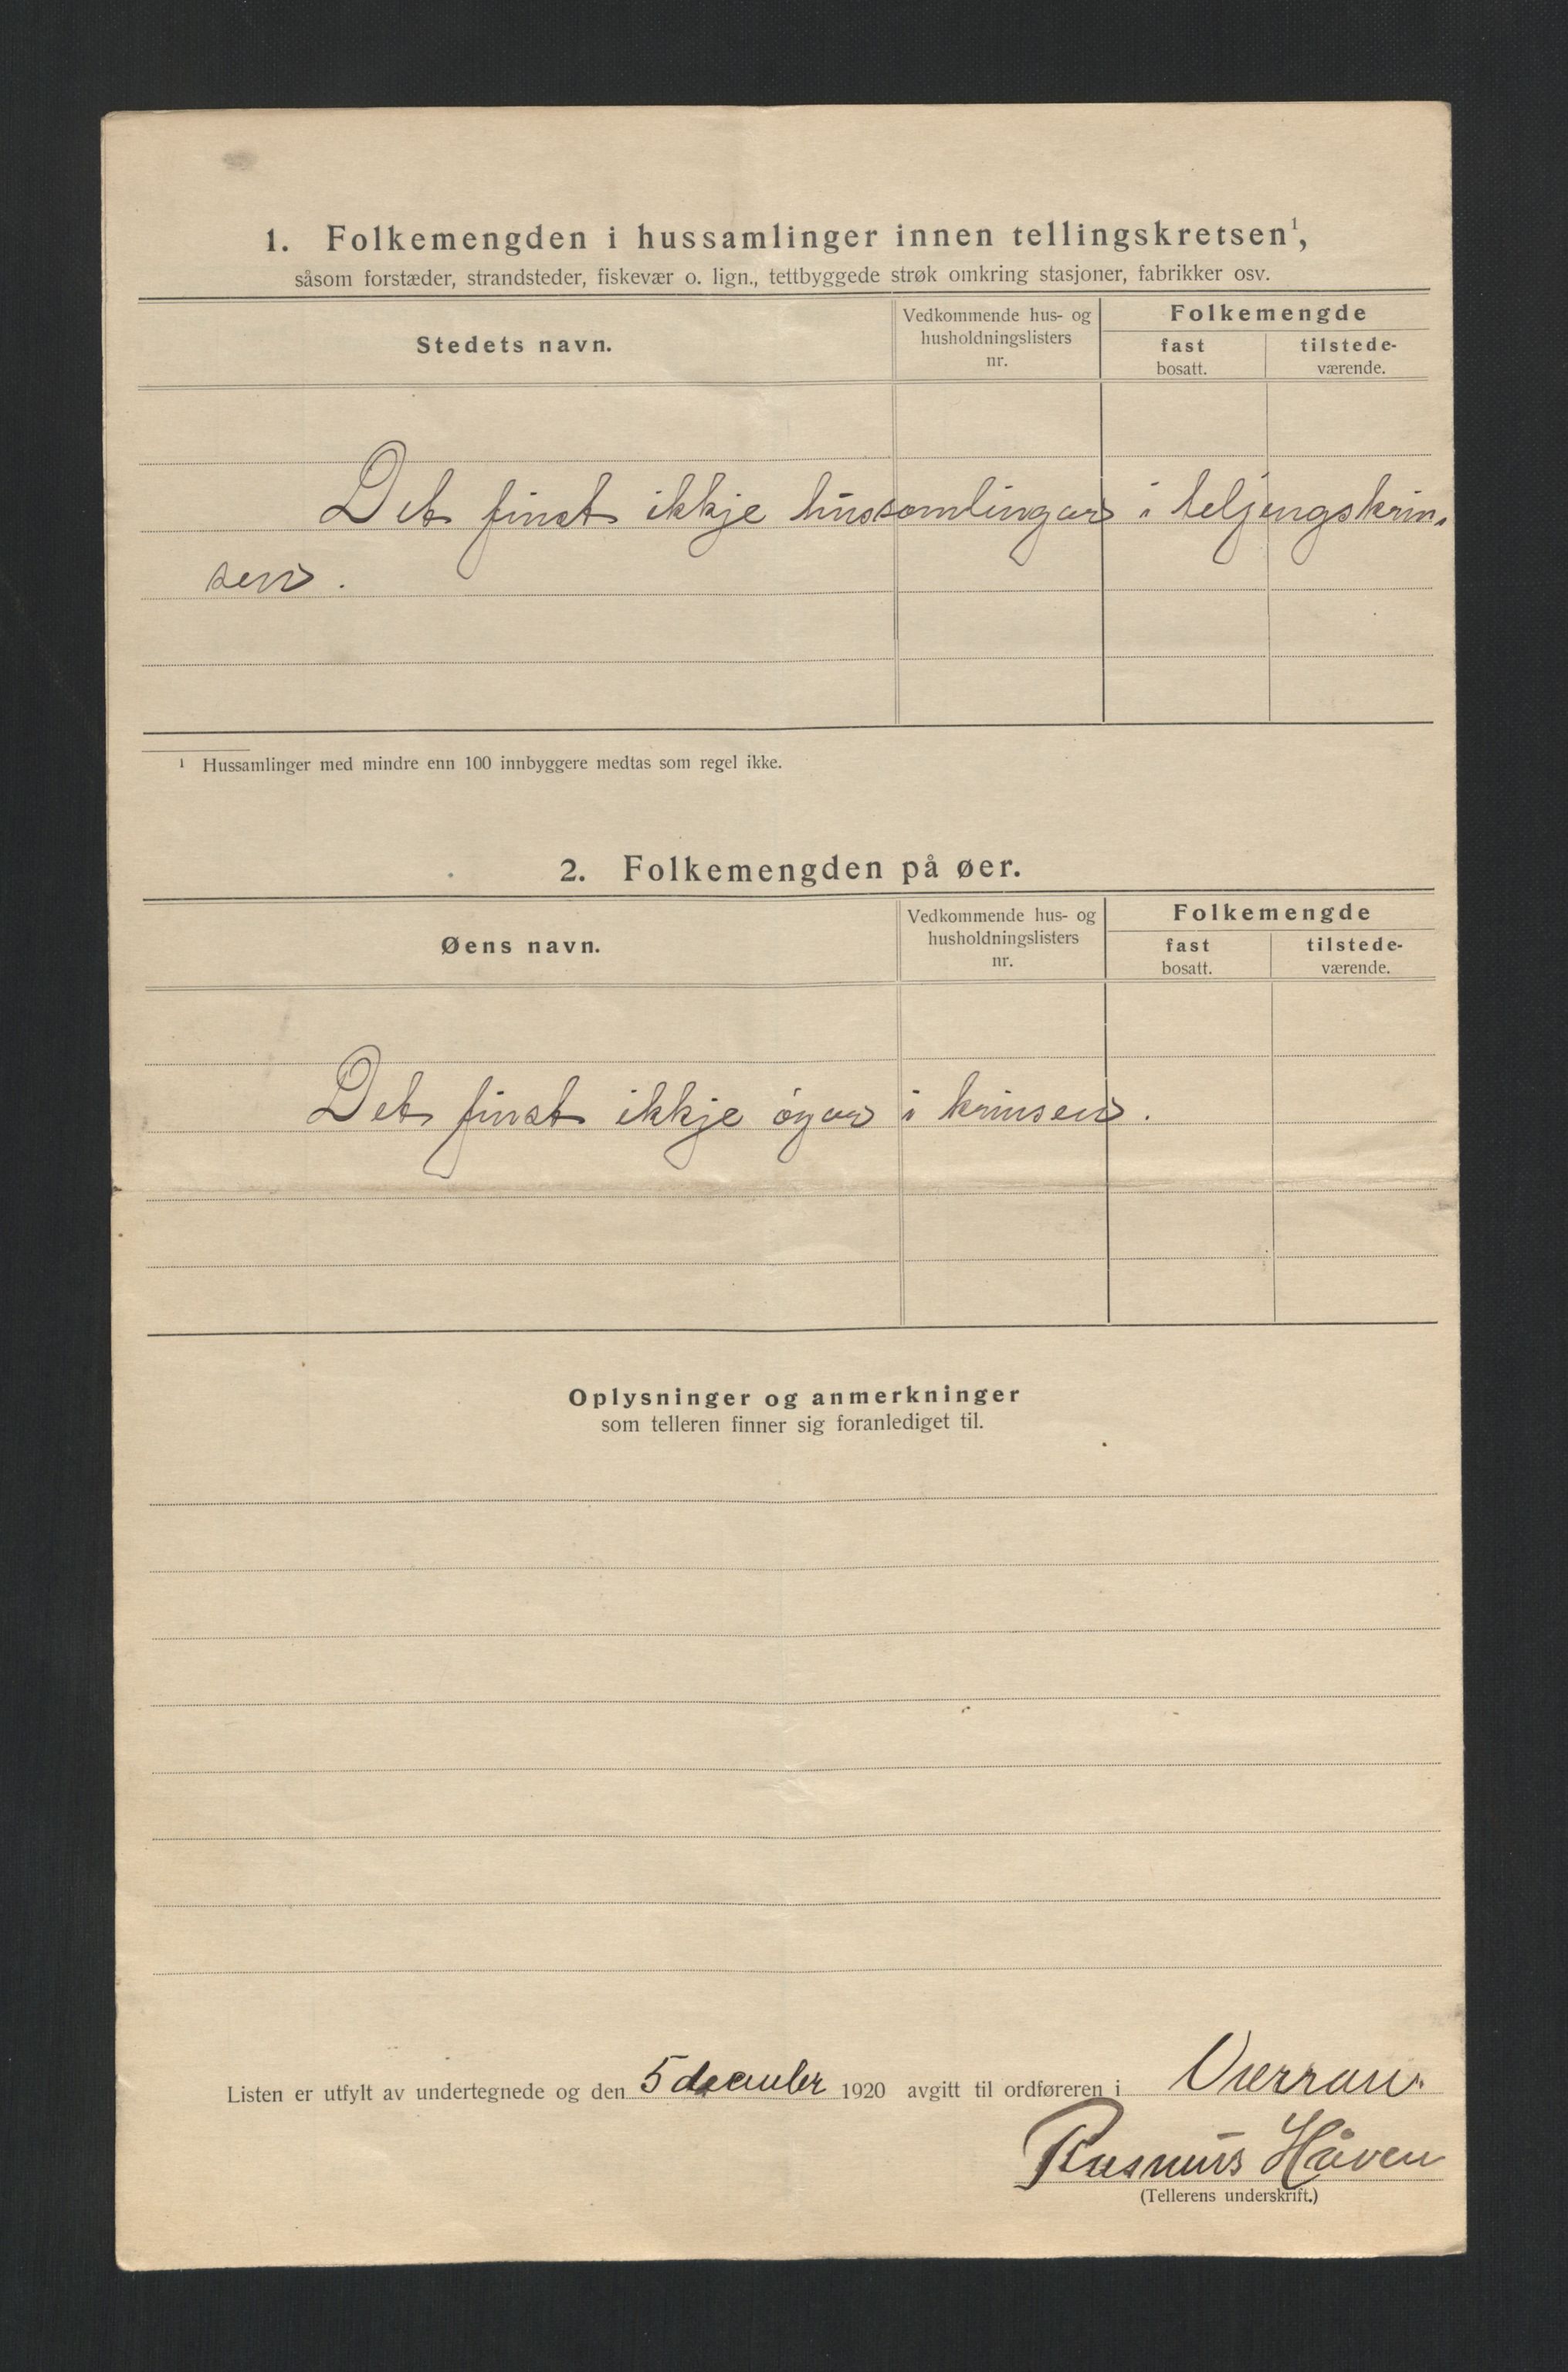 1. Folkemengden i hussamlinger innen tellingskretsen¹,
såsom forstæder, strandsteder, fiskevær o. lign., tettbyggede strøk omkring stasjoner, fabrikker osv.
Stedets navn.
Vedkommende hus- og
husholdningslisters
nr.
Folkemengde
fast
bosatt.
tilstede-
værende.
Det finst ikkje hussamlingar i teljingskrin-
sen.
¹ Hussamlinger med mindre enn 100 innbyggere medtas som regel ikke.
2. Folkemengden på øer.
Øens navn.
Vedkommende hus- og
husholdningslisters
nr.
Folkemengde
fast
bosatt.
tilstede-
værende.
Det finst ikkje öyar i krinsen.
Oplysninger og anmerkninger
som telleren finner sig foranlediget til.
Listen er utfylt av undertegnede og den 5 december 1920 avgitt til ordføreren i Verran.
Rasmus Håven
(Tellerens underskrift.)